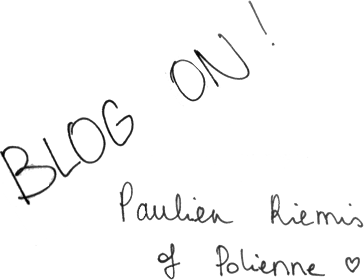 BLOG ON!
Paulien Riemis
of Polienne ♡